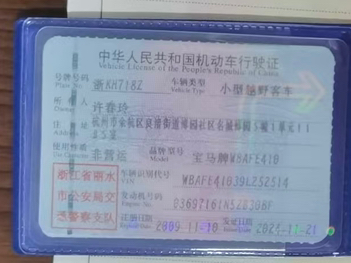 中华人民共和国机动车行驶证
Vehicle License of the People's Republic of China
号牌号码 浙KH7182 车辆类型 小型越野客车
Plate No. Vehicle Type
所有人 许春玲
Owner
住址 杭州市余杭区良渚街道
Address
使用性质 非营运 品牌型号 宝马牌WBAFE410
Use Character Model
浙江省丽水 车辆识别代号 WBAFE41039L252514
VIN
市公安局交 发动机号码 03697161N52B30BF
Engine No.
通警察支队 注册日期 2009-11-10 发证日期 2024-11-21
Register Date Issue Date